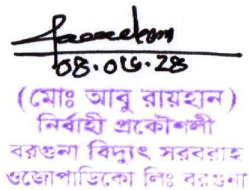 ০৪.০৬.২৪
(মোঃ আবু রায়হান)
নির্বাহী প্রকৌশলী
বরগুনা বিদ্যুৎ সরবরাহ
ওজোপাডিকো লিঃ বরগুনা